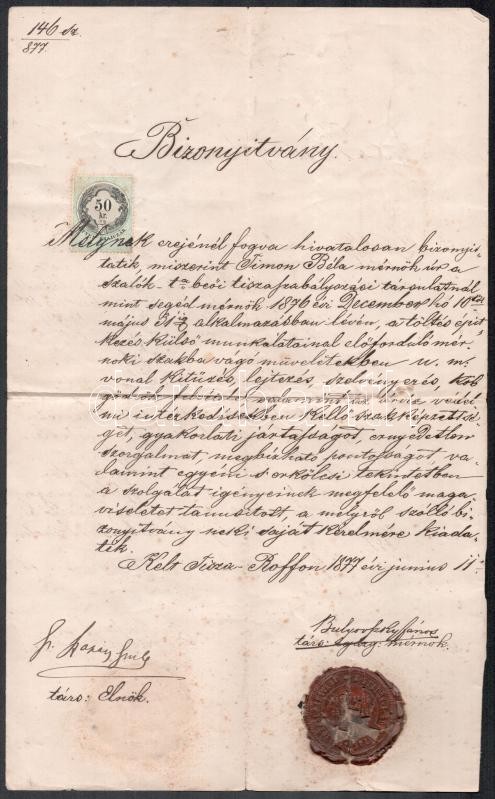 146 sz.
877.
Bizonyitvány.
50
kr.
Melynek erejénél fogva hivatalosan bizonyit-
tatik, miszerint Timon Béla mérnök úr a
szalók - t. beői tiszaszabályozási társulatnál
mint segéd mérnök 1876 évi December hó
május 31 ig alkalmazásban lévén, a töltés épit
kezés külső munkálatainál előforduló mér-
nöki szakba vágó műveletekben u. m.
vonal kitűzés, lejtezés, szelvényezés,
valamint
intézkedésekben kellő szakképzettsé-
get, gyakorlati jártasságot, ernyedetlen
szorgalmat, megbizható pontosságot va-
lamint egyéni s erkölcsi tekintetben
a szolgálat igényeinek megfelelő maga
viseletet tanusitott, a melyről szólló bi-
zonyitvány neki saját kérelmére kiada-
tik.
Kelt Tisza-Roffon 1877 évi junius 11.
Bulyovszky János
társ: mérnök.
társ: Elnök.